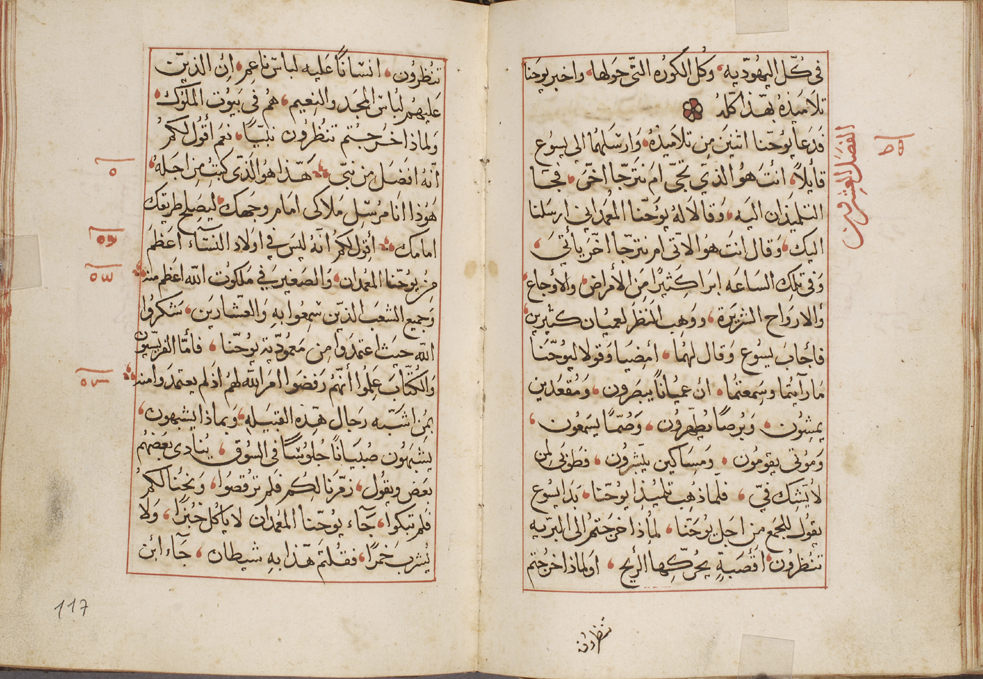 في كل اليهوديه وكل الكوره التي حولها واخبر يوحنا
تلاميذه بهذا كله
فدعا يوحنا اثنين من تلاميذه وارسلهما الى يسوع
قايلا انت هو الذي تجى ام نترجا اخر فجا
التلميذان اليه وقالا له يوحنا المعمدان ارسلنا
اليك وقال انت هو الاتى ام نترجا اخر يأتي
وفى تلك الساعه ابرا كثيرا من الأمراض والأوجاع
والارواح الشريرة ووهب النظر لعميان كثيرين
فأجاب يسوع وقال لهما امضيا وقولا ليوحنا
ما رأيتما وسمعتما ان عميانا يبصرون ومقعدين
يمشون وبرصا يطهرون وصما يسمعون
وموتى يقومون ومساكين يبشرون وطوبى لمن
لا يشك في فلما ذهب تلميذا يوحنا بدا يسوع
يقول للجمع من اجل يوحنا لماذا خرجتم الى البريه
تنظرون أقصبة يحركها الريح او لماذا خرجتم
تنظرون
الفصل العشرون
تنظرون انسانا عليه لباس ناعم ان الذين
عليهم لباس المجد والنعيم هم في بيوت الملوك
ولماذا خرجتم تنظرون نبيا نعم أقول لكم
انه افضل من نبي هذا هو الذي كتب من اجله
هوذا انا مرسل ملاكى امام وجهك ليصلح طريقك
امامك اقول لكم انه ليس في اولاد النساء أعظم
من يوحنا المعمدان والصغير في ملكوت الله اعظم منه
وجميع الشعب الذين سمعوا به والعشارين شكروا
الله حيث اعتمدوا من معمودية يوحنا فأما الفريسيون
والكتاب علموا انهم رفضوا امر الله لهم اذ لم يعتمدوا منه
بمن اشبه رجال هذه القبيله وبماذا يشبهون
يشبهون صبيانا جلوسا في السوق ينادى بعضهم
بعض ويقول زمرنا لكم فلم ترقصوا ونحنا لكم
فلم تبكوا جاء يوحنا المعمدان لا ياكل خبزا ولا
يشرب خمرا فقلتم هذا به شيطان جاء ابن
117